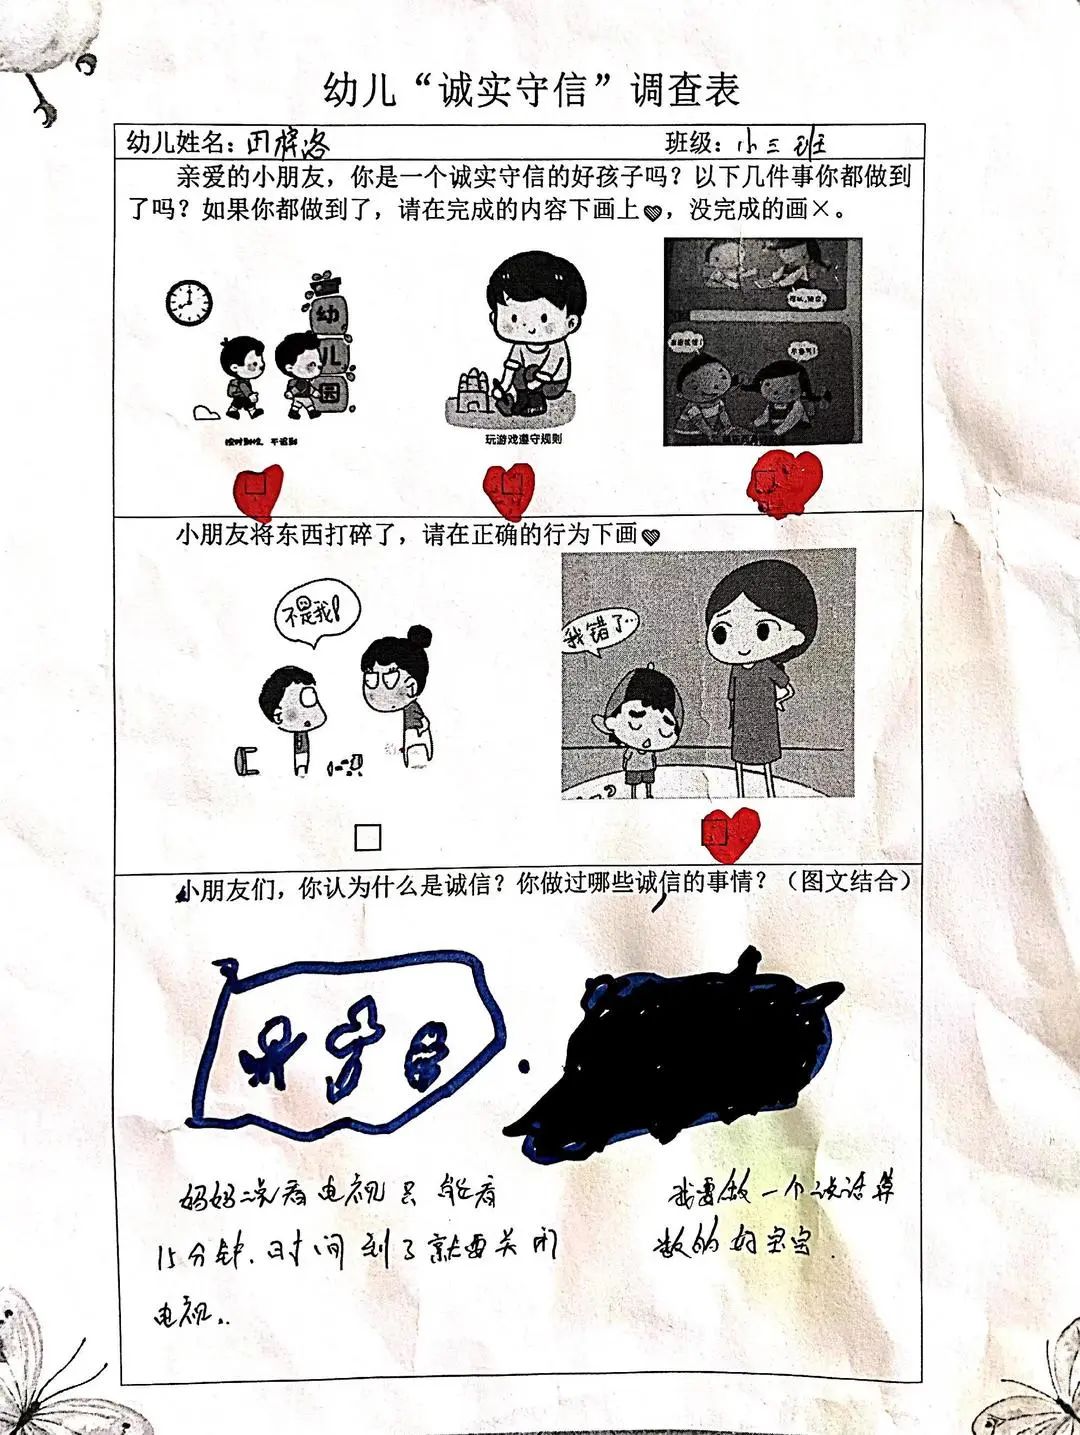 幼儿“诚实守信”调查表
幼儿姓名：田梓洛 班级：小三班
亲爱的小朋友，你是一个诚实守信的好孩子吗？以下几件事你都做到
了吗？如果你都做到了，请在完成的内容下画上♥，没完成的画×。
幼儿园
按时到校，不迟到
玩游戏遵守规则
小朋友将东西打碎了，请在正确的行为下画♥
不是我！
我错了…
小朋友们，你认为什么是诚信？你做过哪些诚信的事情？（图文结合）
妈妈说看电视只能看
15分钟，时间到了就要关闭
电视..
我要做一个说话算
数的好宝宝.